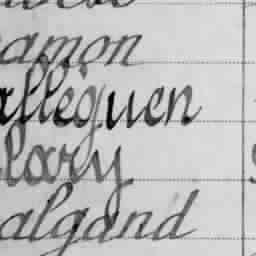 amon
alleguen
lary
algand